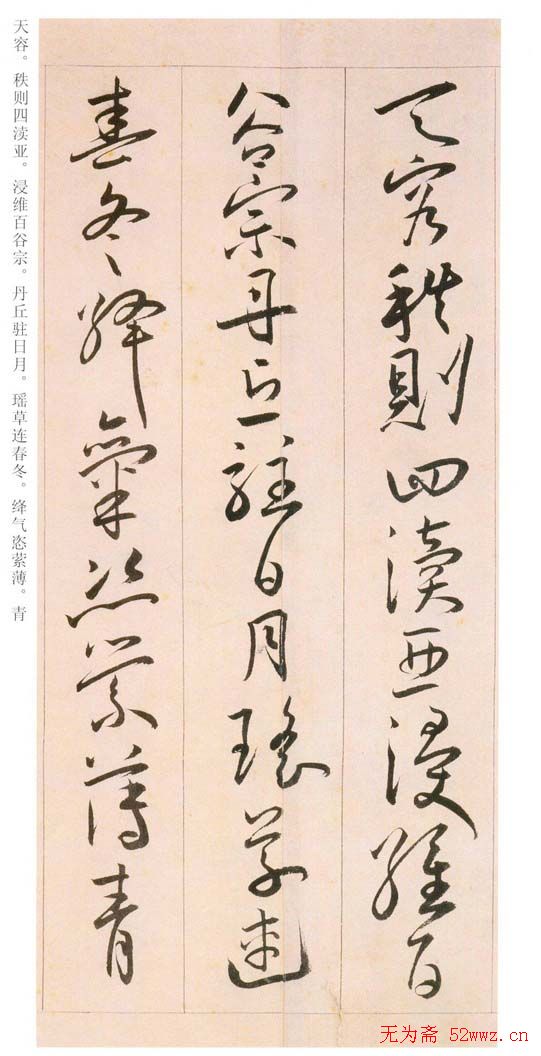 天容秩則四瀆亞浸維百
谷宗丹丘駐日月瑤草連
春冬絳氣恣縈薄青
天容。秩则四渎亚。浸维百谷宗。丹丘驻日月。瑶草连春冬。绛气恣萦薄。青
无为斋 52wwz.cn